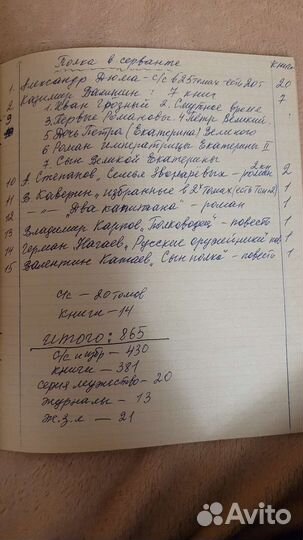 Полка в серванте книги
1. Александр Дюма - с/с в 25 томах - есть 20т 20
2 Казимир Валишин: 7 книг 7
1. Иван Грозный 2. Смутное время
3. Первые Романовы. 4 Петр Великий
5 Дочь Петра (Екатерина) Великого
6 Роман императрицы Екатерины II
7 Сын Великой Екатерины
10 А Степанов, Семья Звонаревых - роман 2кн 2
11 В Каверин, "избранные в 2х томах (есть Том 1) 1
12 - " - "Два капитана" - роман 1
13 Владимир Карпов "Полководец" - повесть 1
14 Герман Нагаев, Русские оружейники" 1
15 Валентин Катаев, Сын полка" - повесть 1
с/с - 20 томов
книги - 14
итого: 865
с/с и избр - 430
книги - 381
серия мужество - 20
журналы - 13
ж.з.л - 21
Avito